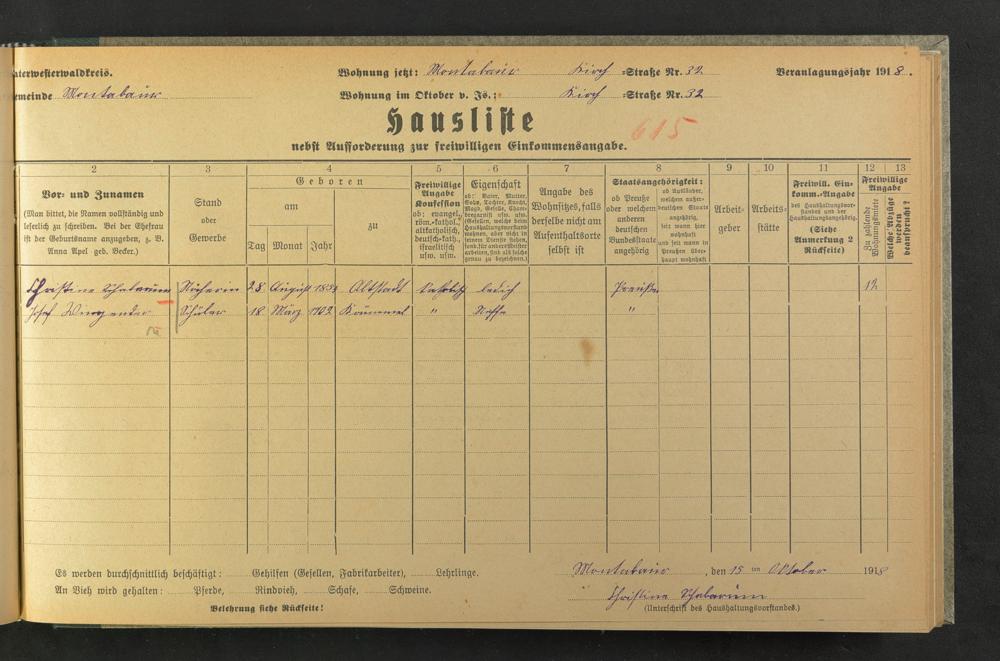 Unterwesterwaldkreis. Wohnung jetzt: Montabaur Kirch =Straße Nr. 32 Veranlagungsjahr 1918.
Gemeinde Montabaur Wohnung im Oktober v. Js.: Kirch =Straße Nr. 32
Hausliste 615
nebst Aufforderung zur freiwilligen Einkommensangabe.
2 3 4 5 6 7 8 9 10 11 12 13
Vor- und Zunamen
(Man bittet, die Namen vollständig und
leserlich zu schreiben. Bei der Ehefrau
ist der Geburtsname anzugeben, z. B.
Anna Apel geb. Becker.)
Stand
oder
Gewerbe
Geboren
am
Tag Monat Jahr
zu
Freiwillige
Angabe
Konfession
ob: evangel.,
röm.-kathol.,
altkatholisch,
deutsch-kath.,
israelitisch
usw. usw.
Eigenschaft
ob: Vater, Mutter,
Sohn, Tochter, Knecht,
Magd, Geselle, Cham-
bregarnist usw. usw.
Angabe des
Wohnsitzes, falls
derselbe nicht am
Aufenthaltsorte
selbst ist
Staatsangehörigkeit:
ob Preuße
oder welchem
anderen
deutschen
Bundesstaate
angehörig
ob Ausländer,
welchem außer-
deutschen Staate
angehörig,
seit wann hier
wohnhaft
und seit wann in
Preußen über-
haupt wohnhaft
Arbeit-
geber
Arbeits-
stätte
Freiwill. Ein-
komm.-Angabe
des Haushaltungsvor-
standes und der
Haushaltungsangehörig.
(Siehe
Anmerkung 2
Rückseite)
Freiwillige
Angabe
Zu zahlende
Wohnungsmiete
Welche Abzüge
werden
beansprucht?
Christine Schabarum Näherin 28 August Altstadt kathol. ledig Preuße
Josef Schüler 18 März 1902 Krümmel " Neffe "
Es werden durchschnittlich beschäftigt: Gehilfen (Gesellen, Fabrikarbeiter), Lehrlinge.
An Vieh wird gehalten: Pferde, Rindvieh, Schafe, Schweine.
Belehrung siehe Rückseite!
Montabaur, den 15 ten Oktober 1918
Christine Schabarum
(Unterschrift des Haushaltungsvorstandes.)